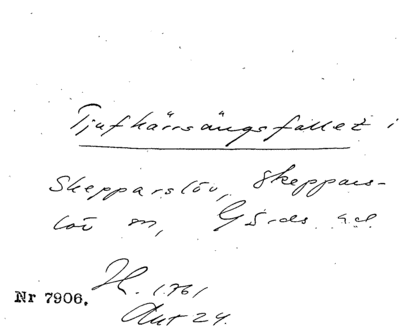 Tjufkärrsängsfallet i
Skepparslöv, Skeppars-
löv sn, Gärds hd.
H. 1761
Nr 7906.
Akt 24.